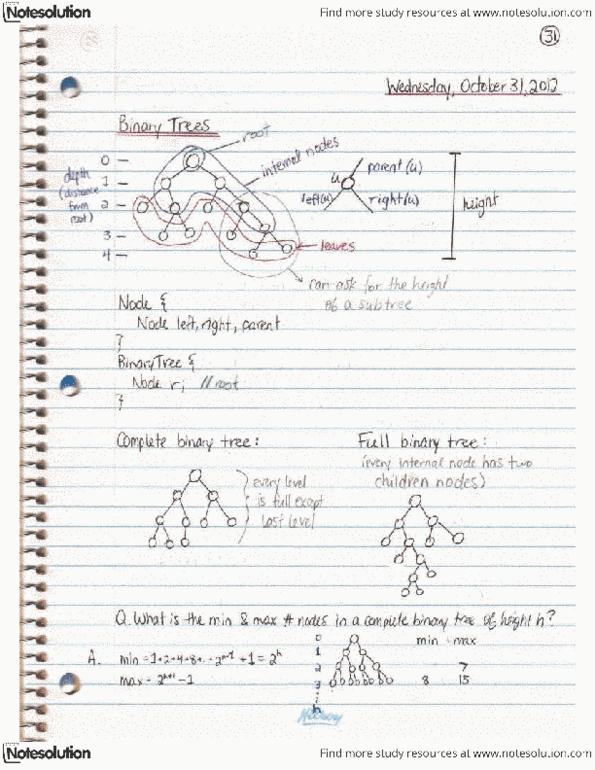 Notesolution
Find more study resources at www.notesolution.com
31
Wednesday, October 31, 2012
Binary Trees
root
internal nodes
depth
(distance
from
root)
0 —
1 —
2 —
3 —
4 —
u
parent(u)
left(u)
right(u)
height
leaves
can ask for the height
of a subtree
Node {
Node left, right, parent
}
BinaryTree {
Node r; // root
}
Complete binary tree:
every level
is full except
last level
Full binary tree:
(every internal node has two
children nodes)
Q. What is the min & max # nodes in a complete binary tree of height h?
A. min = 1+2+4+8+...2^(h-1) +1 = 2^h
max = 2^(h+1) - 1
0
1
2
3
h
min max
7
8 15
Notesolution
Find more study resources at www.notesolution.com